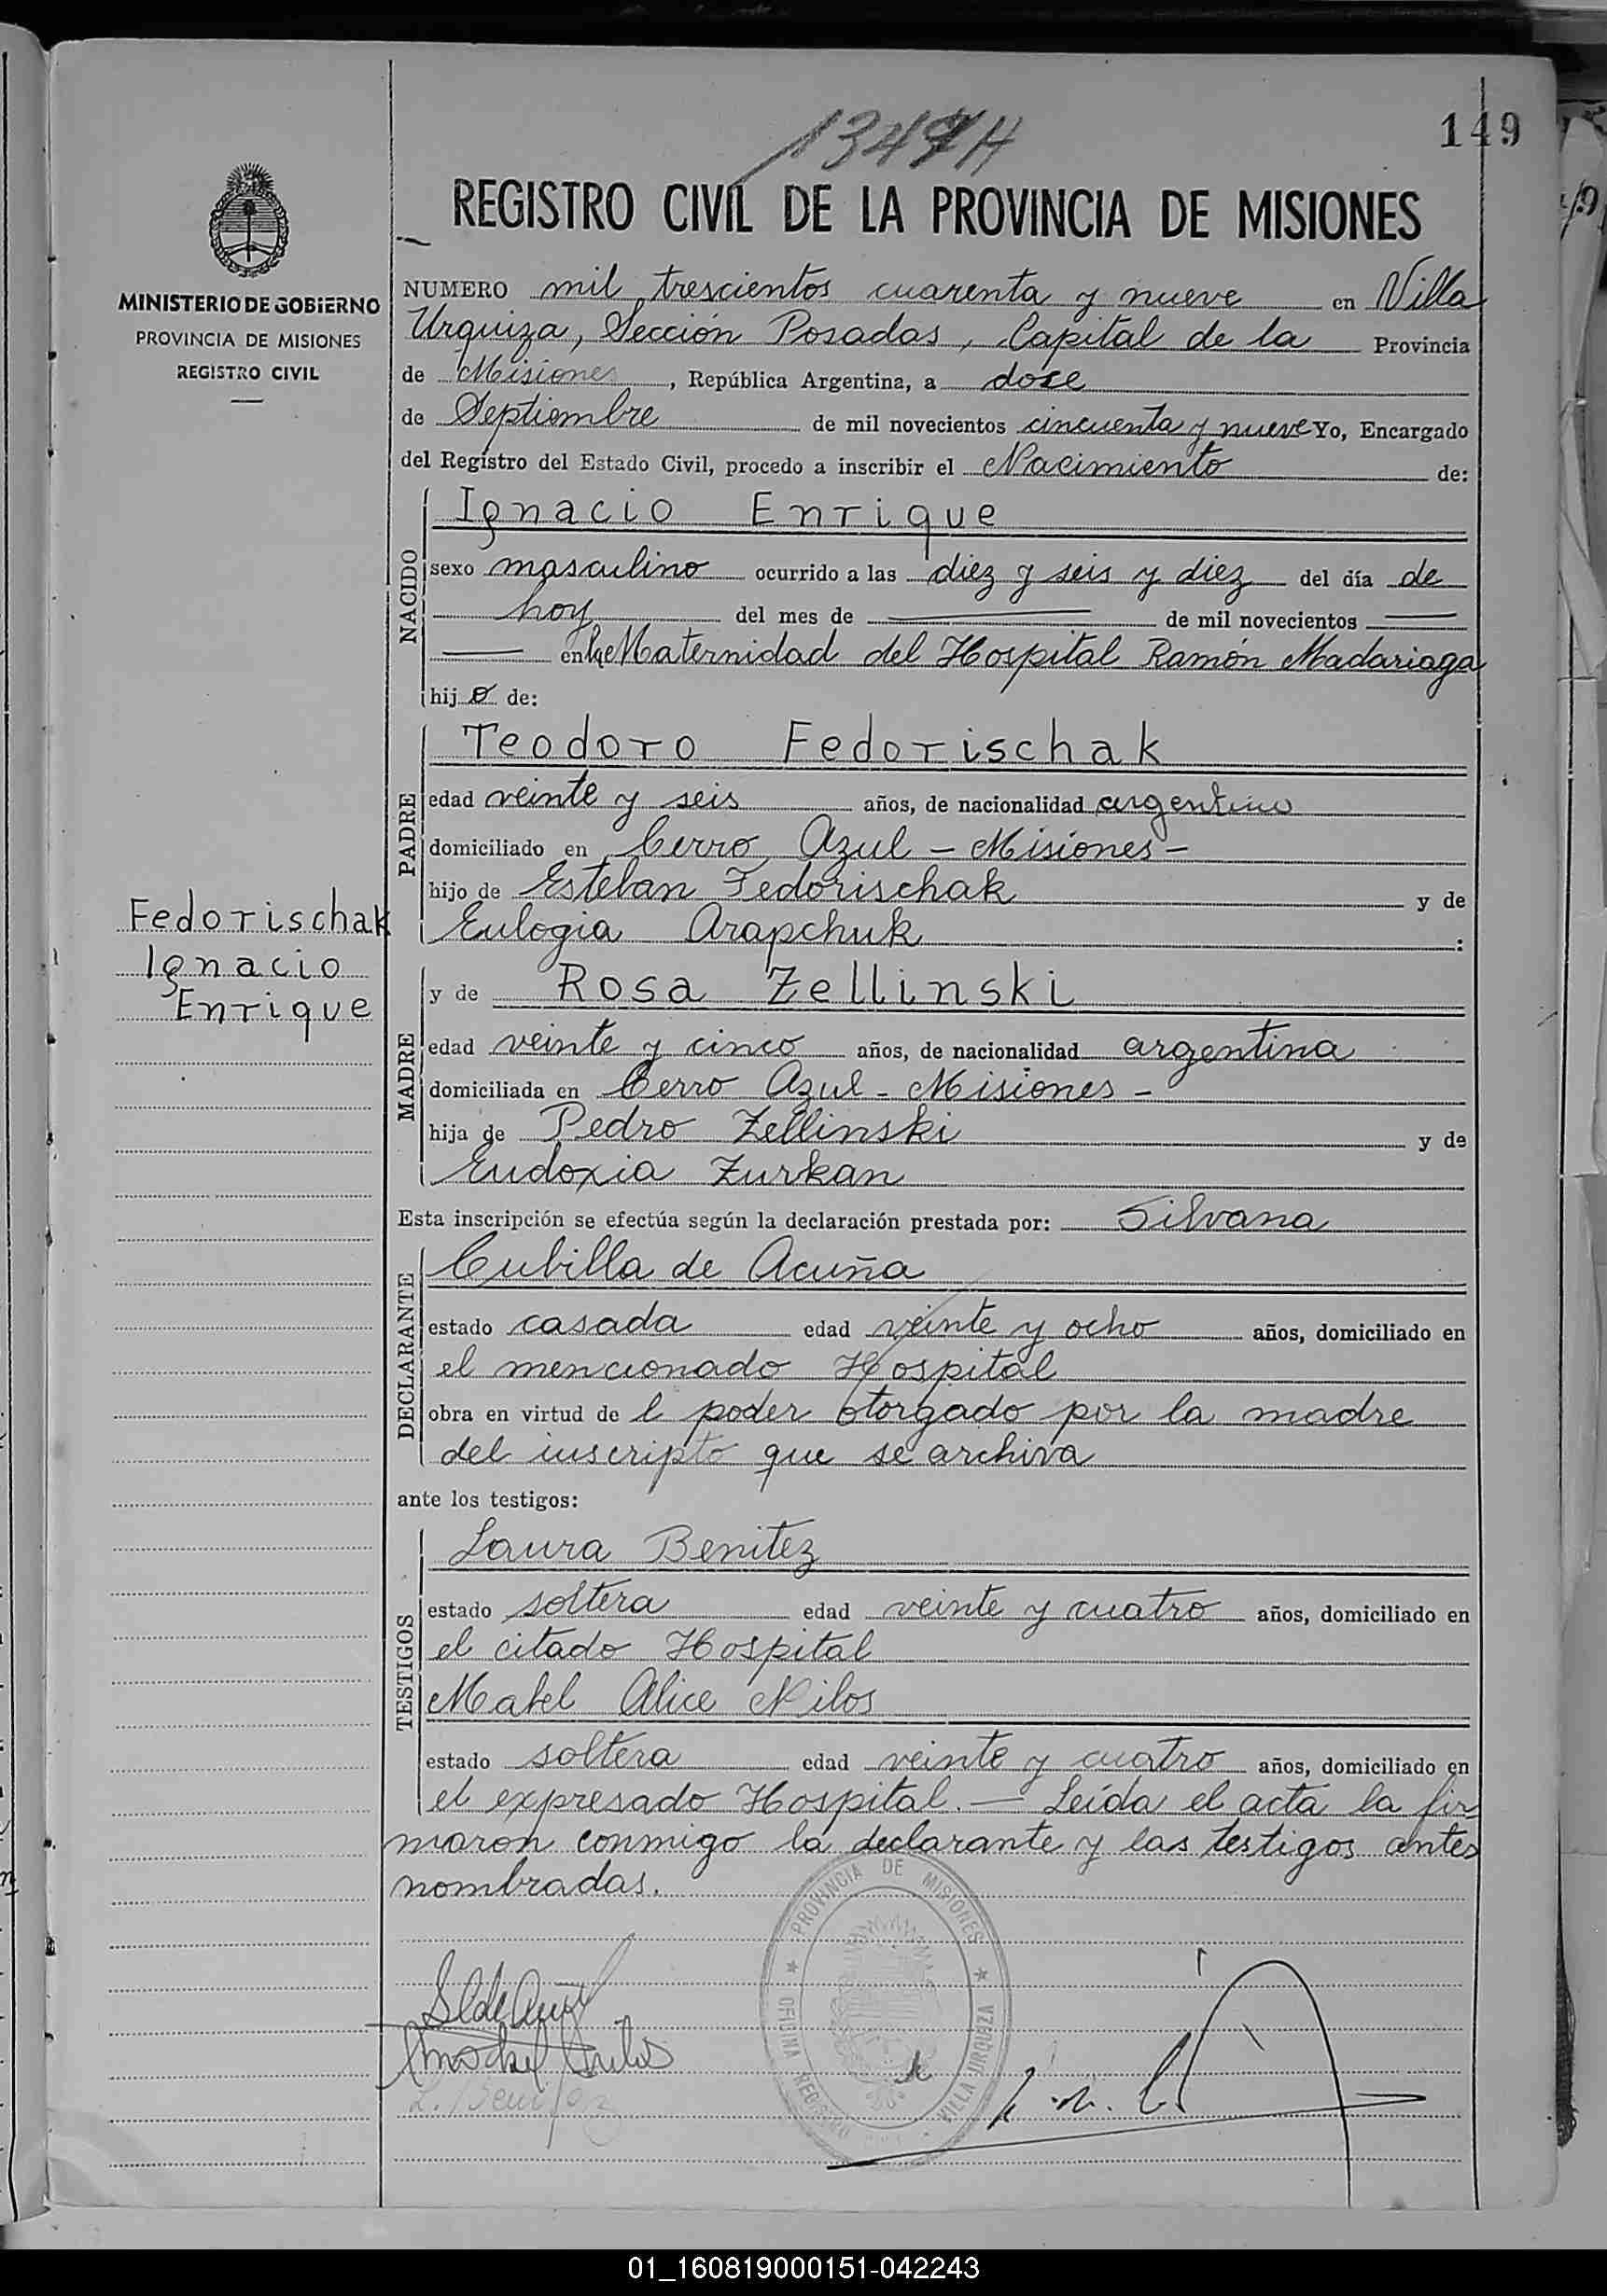 149
REGISTRO CIVIL DE LA PROVINCIA DE MISIONES
MINISTERIO DE GOBIERNO
PROVINCIA DE MISIONES
REGISTRO CIVIL
NUMERO mil trescientos cuarenta y nueve en Villa
Urquiza, Sección Posadas, Capital de la Provincia
de Misiones, República Argentina, a doce
de Septiembre de mil novecientos cincuenta y nueve Yo, Encargado
del Registro del Estado Civil, procedo a inscribir el Nacimiento de:
NACIDO
Ignacio Enrique
sexo masculino ocurrido a las diez y seis y diez del día de
hoy del mes de — de mil novecientos —
— en la Maternidad del Hospital Ramón Madariaga
hijo de:
PADRE
Teodoro Fedorischak
edad veinte y seis años, de nacionalidad argentino
domiciliado en Cerro Azul - Misiones -
hijo de Esteban Fedorischak y de
Eulogia Arapchuk :
Fedorischak
Ignacio
Enrique
MADRE
y de Rosa Zellinski
edad veinte y cinco años, de nacionalidad argentina
domiciliada en Cerro Azul - Misiones -
hija de Pedro Zellinski y de
Eudoxia Zurkan
Esta inscripción se efectúa según la declaración prestada por: Silvana
DECLARANTE
Cubilla de Acuña
estado casada edad veinte y ocho años, domiciliado en
el mencionado Hospital
obra en virtud de l poder otorgado por la madre
del inscripto que se archiva
ante los testigos:
TESTIGOS
Laura Benitez
estado soltera edad veinte y cuatro años, domiciliado en
el citado Hospital
Mabel Alice Nilos
estado soltera edad veinte y cuatro años, domiciliado en
el expresado Hospital. — Leída el acta la fir-
maron conmigo la declarante y las testigos antes
nombradas.
PROVINCIA DE MISIONES
OFICINA REGISTRO VILLA URQUIZA
L. Benitez
01_160819000151-042243